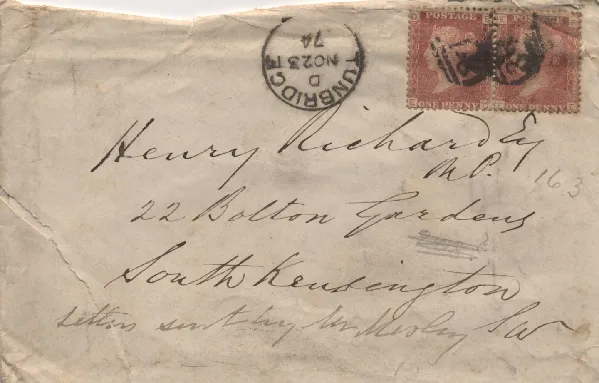 POSTAGE POSTAGE
ONE PENNY ONE PENNY
TUNBRIDGE
D
NO 23
74
Henry Richard Esq
M.P.
163
22 Bolton Gardens
South Kensington
letters sent by Mr
S.W